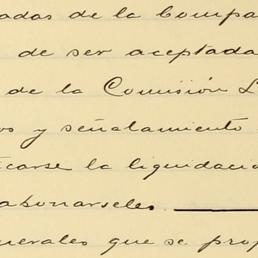 adas de la Compa
de ser aceptada
de la Comisión L
os y señalamiento
icarse la liquidacio
abonarseles.
nerales que se prop